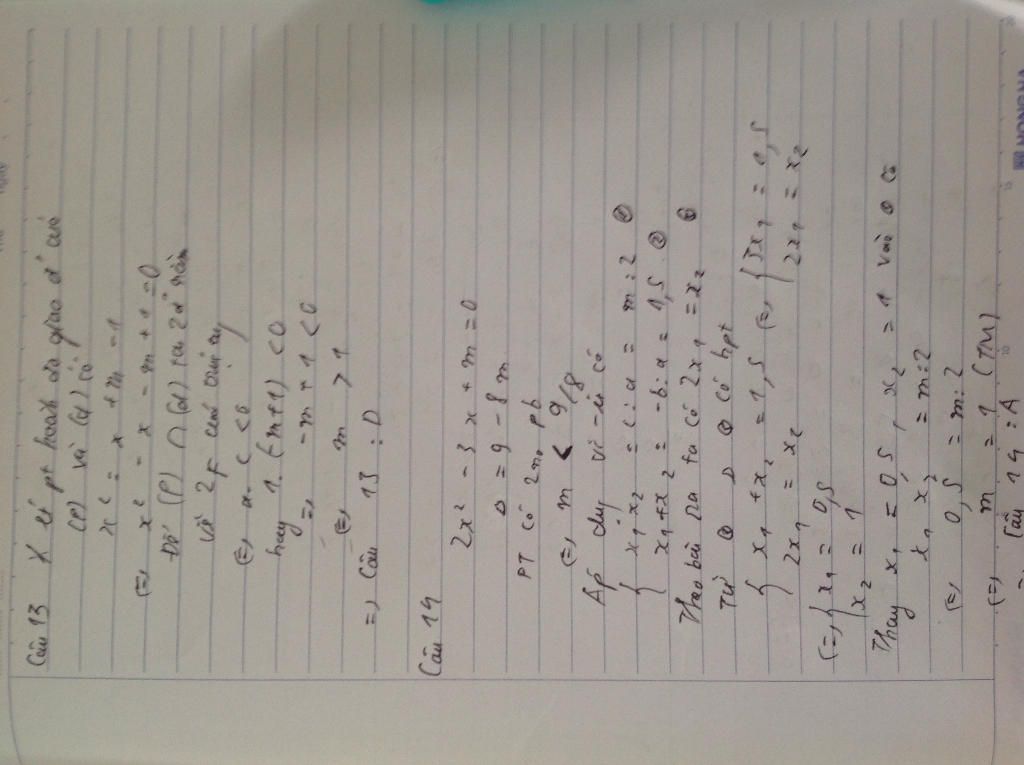 Câu 13 Xét pt hoành độ giao đ' của
(P) và (d) có
x² = x + m - 1
(=) x² - x - m + 1 = 0
Để (P) ∩ (d) tại 2 đ' nằm
về 2 F của trục tung
(=) a.c < 0
hay 1.(-m+1) < 0
=) -m + 1 < 0
(=) m > 1
=) Câu 13 : D
Câu 14
2x² - 3x + m = 0
Δ = 9 - 8m
PT có 2 no pb
(=) m < 9/8
Áp dụng vi-ét có
{ x₁x₂ = c:a = m:2 ①
x₁+x₂ = -b:a = 1,5 ②
Theo bài ra ta có 2x₁ = x₂ ③
Từ ② ③ có hpt
{ x₁ + x₂ = 1,5 (=) { 3x₁ = 1,5
2x₁ = x₂ 2x₁ = x₂
(=) { x₁ = 0,5
x₂ = 1
Thay x₁ = 0,5 , x₂ = 1 vào ① có
x₁ x₂ = m:2
(=) 0,5 = m:2
(=) m = 1 (TM)
Câu 14 : A